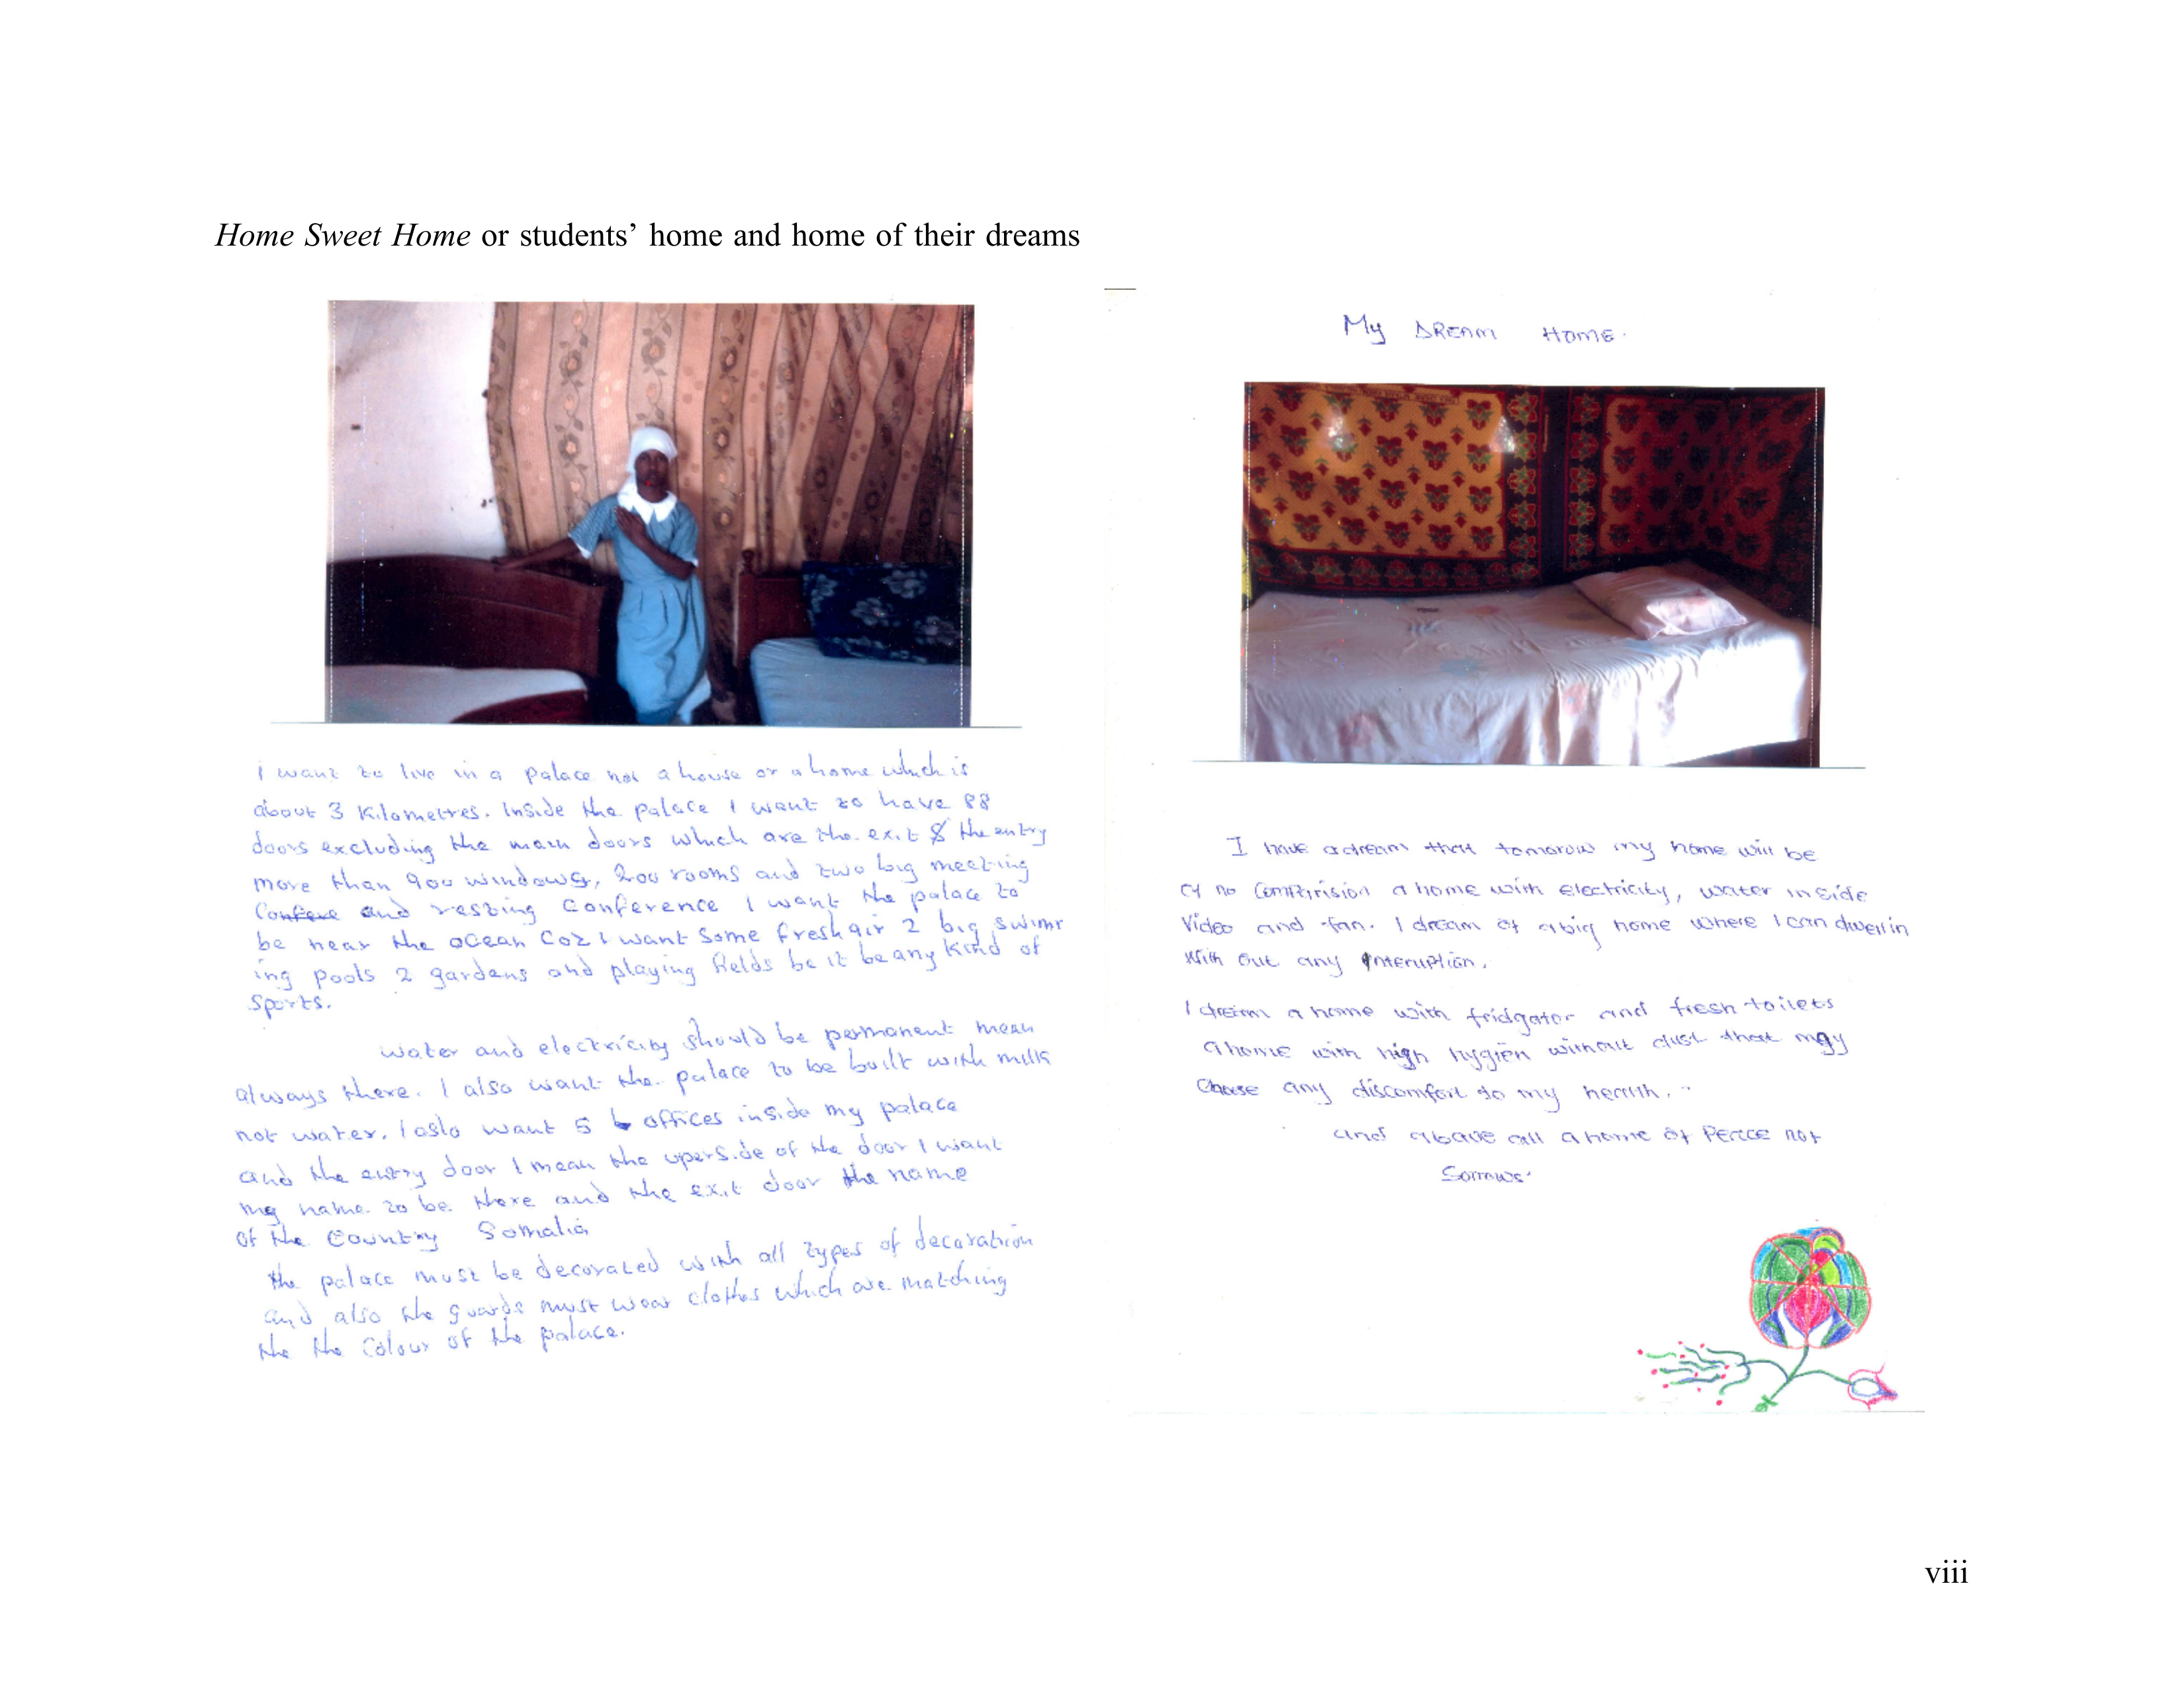 Home Sweet Home or students’ home and home of their dreams
i want to live in a palace not a house or a home which is
about 3 kilometres. Inside the palace I want to have 88
doors excluding the main doors which are the exit & the entry
more than 900 windows, 200 rooms and two big meeting
and resting conference I want the palace to
be near the ocean coz I want some fresh air 2 big swimm
ing pools 2 gardens and playing fields be it be any kind of
sports.
water and electricity should be permanent mean
always there. I also want the palace to be built with milk
not water. I aslo want 5 offices inside my palace
and the entry door I mean the uperside of the door I want
my name to be there and the exit door the name
of the Country Somalia
the palace must be decorated with all types of decoration
and also the guards must wear clothes which are matching
the the colour of the palace.
My DREAM HOME.
I have a dream that tomorow my home will be
of no comparision a home with electricity, water inside
Video and fan. I dream of a big home where I can dwell in
with out any interuption.
I dream a home with fridgator and fresh toilets
a home with high hygien without dust that may
Choose any discomfort to my health.
and above all a home of Peace not
Sorrows.
viii